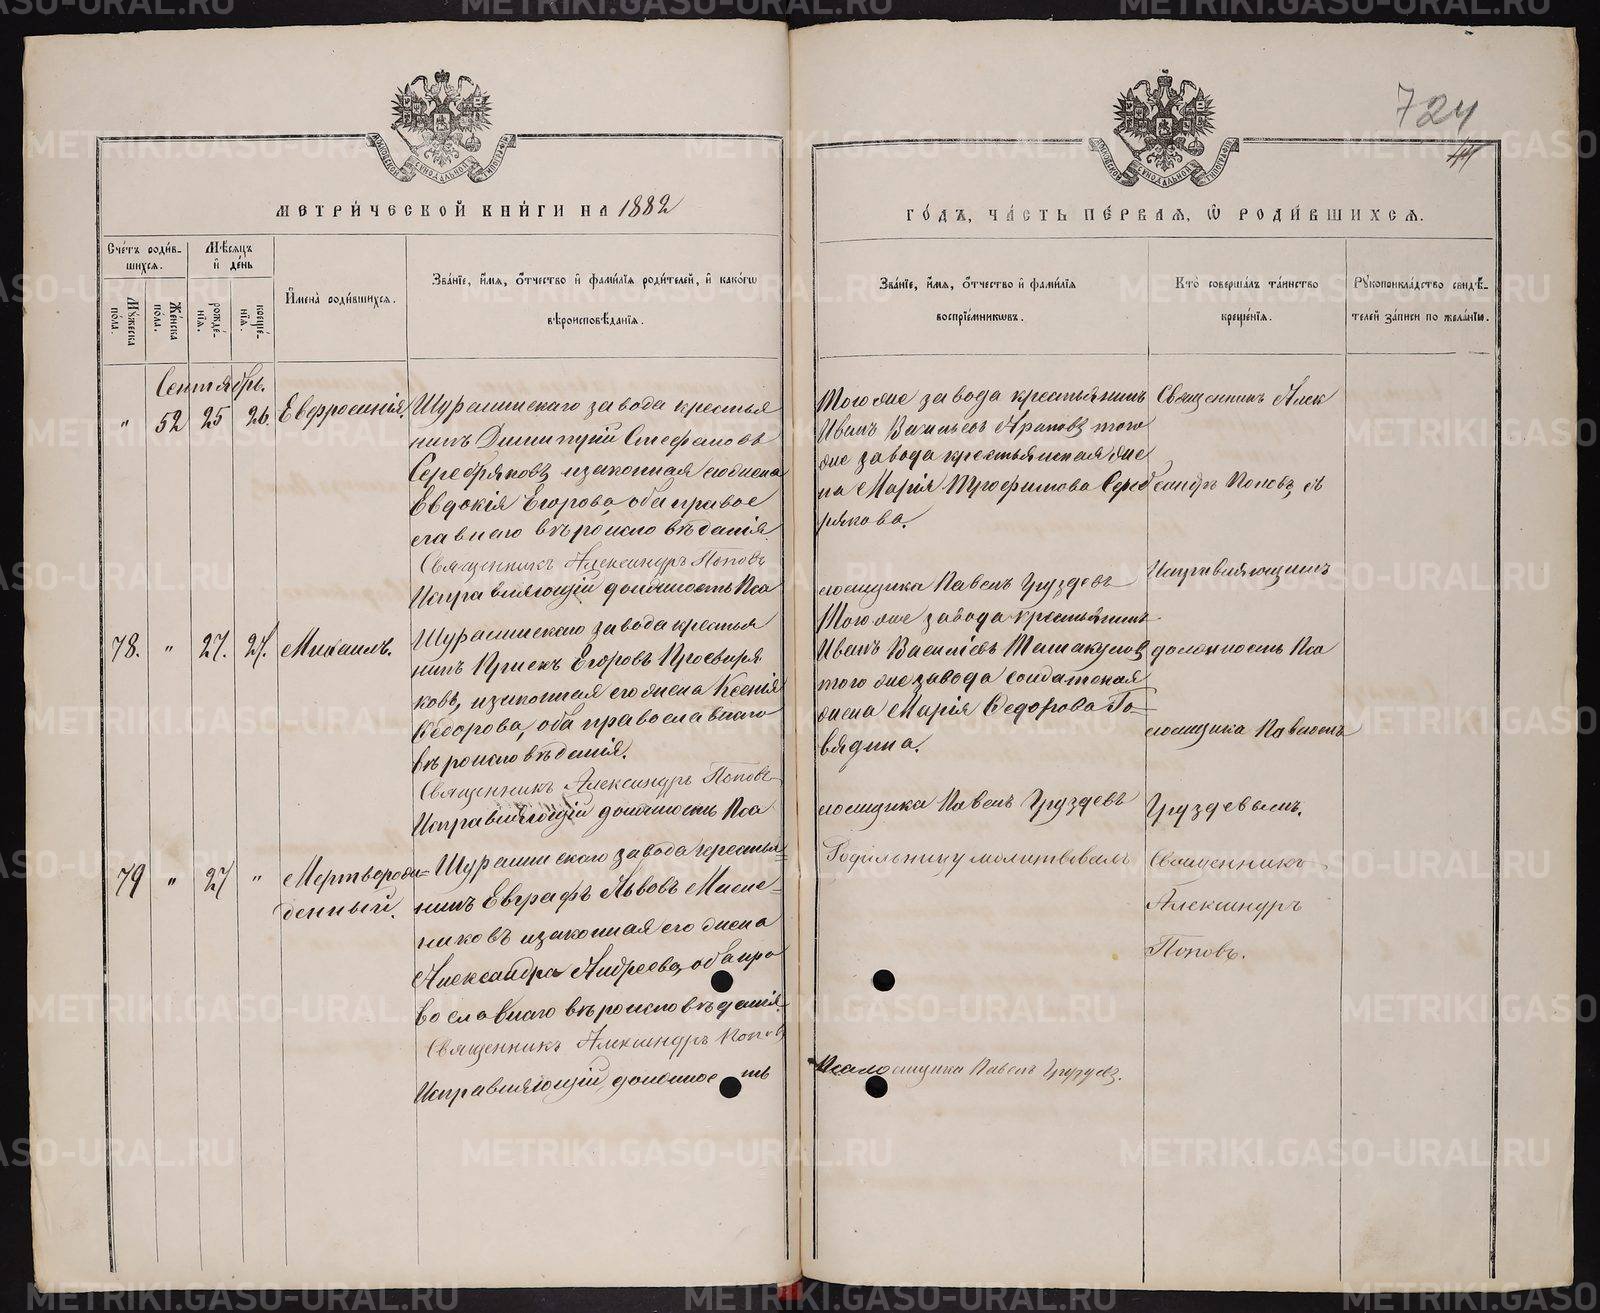 724
44
МЕТРИ́ЧЕСКОЙ КНИ́ГИ НА 1882
ГО́ДЪ, ЧА́СТЬ ПЕ́РВАЯ, Ѿ РОДИ́ВШИХСЯ.
Сче́тъ роди́в-
шихся.
Мѣ́сяцъ
и де́нь
Му́жеска по́ла.
Же́нска по́ла.
рожде́-нія.
креще́-нія.
И҆мена̀ роди́вшихся.
Зва́ніе, и҆́мя, ѻ҆́тчество и҆ фами́лія роди́телей, и҆ како́гѡ
вѣроисповѣ́данія.
Зва́ніе, и҆́мя, ѻ҆́тчество и҆ фами́лія
воспрїе́мникѡвъ.
Кто̀ соверша́лъ та́инство
креще́нія.
Рукоприкла́дство свидѣ́-
телей за́писи по жела́нїю.
Сентябрь.
" 52 25 26. Евфросинія.
Шурминскаго завода крестья
нинъ Димитрій Стефановъ
Серебряковъ, и законная его жена
Евдокія Егорова, оба право
славнаго вѣроисповѣданія.
Священникъ Александръ Поповъ
Исправляющій должность Пса
Того же завода крестьянинъ
Иванъ Васильевъ Араповъ, того
же завода крестьянская же
на Марія Трофимова Сереб
рякова.
ломщика Павелъ Груздевъ
Священникъ Алек
сандръ Поповъ, съ
Исправляющимъ
78. " 27. 27. Михаилъ.
Шурминскаго завода крестья
нинъ Егоровъ Просвиря
ковъ, и законная его жена Ксенія
Ѳедорова, оба православнаго
вѣроисповѣданія.
Священникъ Александръ Поповъ
Исправляющій должность Пса
Того же завода крестьянинъ
Иванъ Васильевъ
того же завода солдатская
жена Марія Ѳедорова Го-
вядина.
ломщика Павелъ Груздевъ
должность Пса
ломщика Павломъ
Груздевымъ.
79 " 27 " Мертворож-
денный.
Шурминскаго завода крестья=
нинъ Евграфъ Львовъ
никовъ и законная его жена
Александра Андреева, оба пра
вославнаго вѣроисповѣданія.
Священникъ Александръ Поповъ
Исправляющій должность
Родильницу молитвовалъ
Псаломщика Павелъ Груздевъ.
Священникъ
Александръ
Поповъ.
METRIKI.GASO-URAL.RU